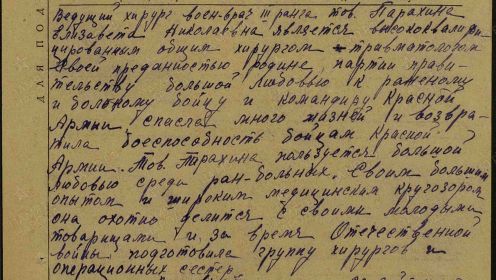 Ведущий хирург воен-врач III ранга тов. Парахина
Елизавета Николаевна является высококвалифи-
цированным общим хирургом-травматологом
Своей преданностью родине, партии прави-
тельству большой любовью к раненому
и больному бойцу и командиру Красной
Армии спасла много жизней и возвра-
тила боеспособность бойцам Красной
Армии. Тов. Парахина пользуется большой
любовью среди ран-больных. Своим большим
опытом и широким медицинским кругозором
она охотно делится с своими молодыми
товарищами и за время Отечественной
войны подготовила группу хирургов и
операционных сестер.
ДЛЯ ПОД